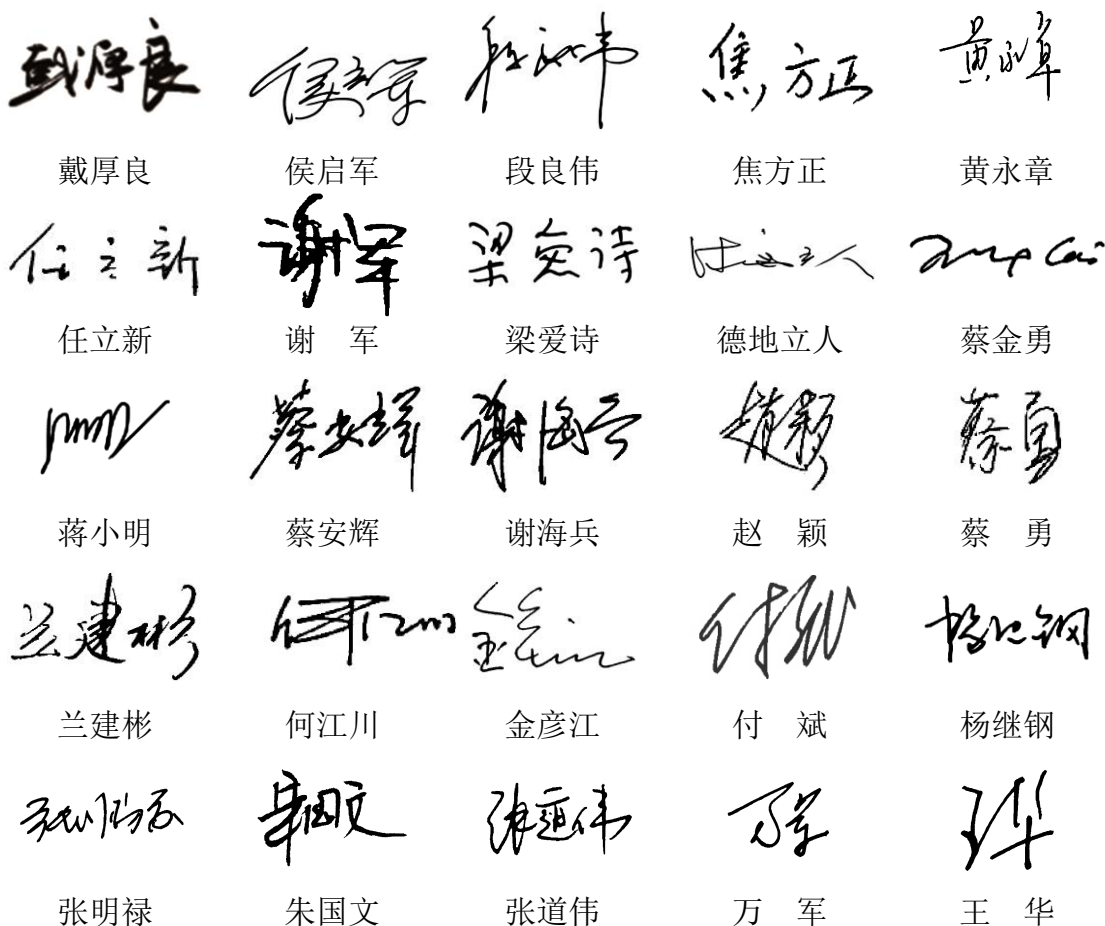 戴厚良 侯启军 段良伟 焦方正 黄永章
戴厚良 侯启军 段良伟 焦方正 黄永章
任立新 谢军 梁爱诗 Cai
任立新 谢 军 梁爱诗 德地立人 蔡金勇
蔡安辉 谢海兵 赵颖 蔡勇
蒋小明 蔡安辉 谢海兵 赵 颖 蔡 勇
兰建彬 何江川 金彦江 付斌 杨继钢
兰建彬 何江川 金彦江 付 斌 杨继钢
张明禄 朱国文 张道伟 万军 王华
张明禄 朱国文 张道伟 万 军 王 华